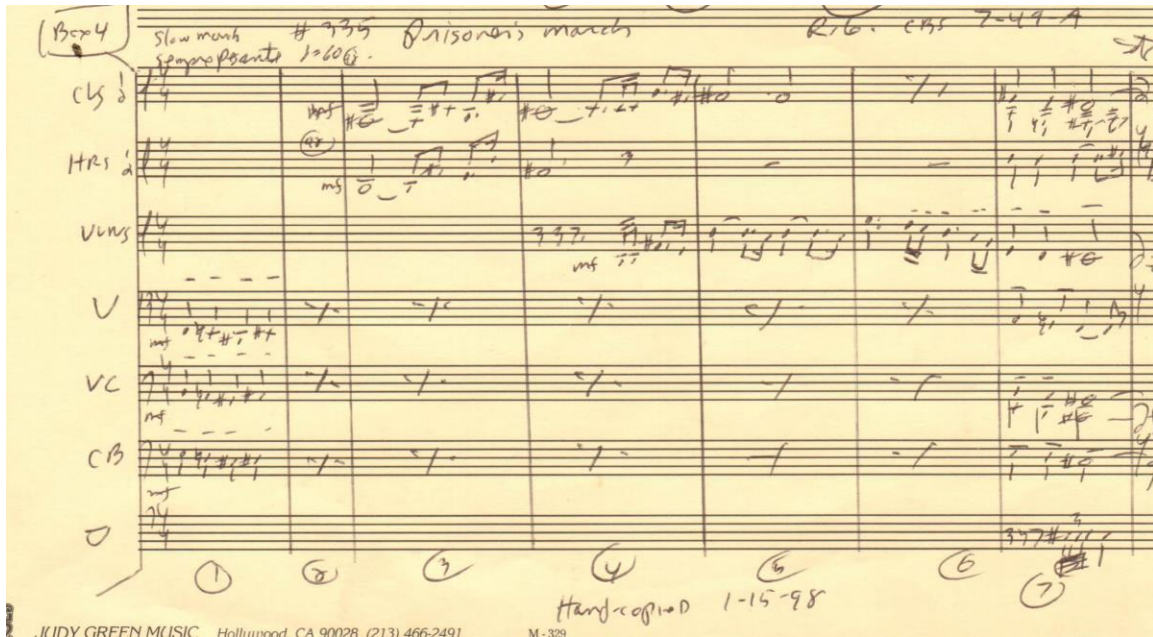 Box 4
Slow march # 335 Prisoner's march R.G. CBS 7-49-A
sempre pesante ♩=60
CLS 1 2
mf
a2
HRS 1 2
mf
VLNS
mf
V
mf
VC
mf
CB
mf
1 2 3 4 5 6 7
Hand-copied 1-15-98
JUDY GREEN MUSIC Hollywood, CA 90028 (213) 466-2491 M - 329